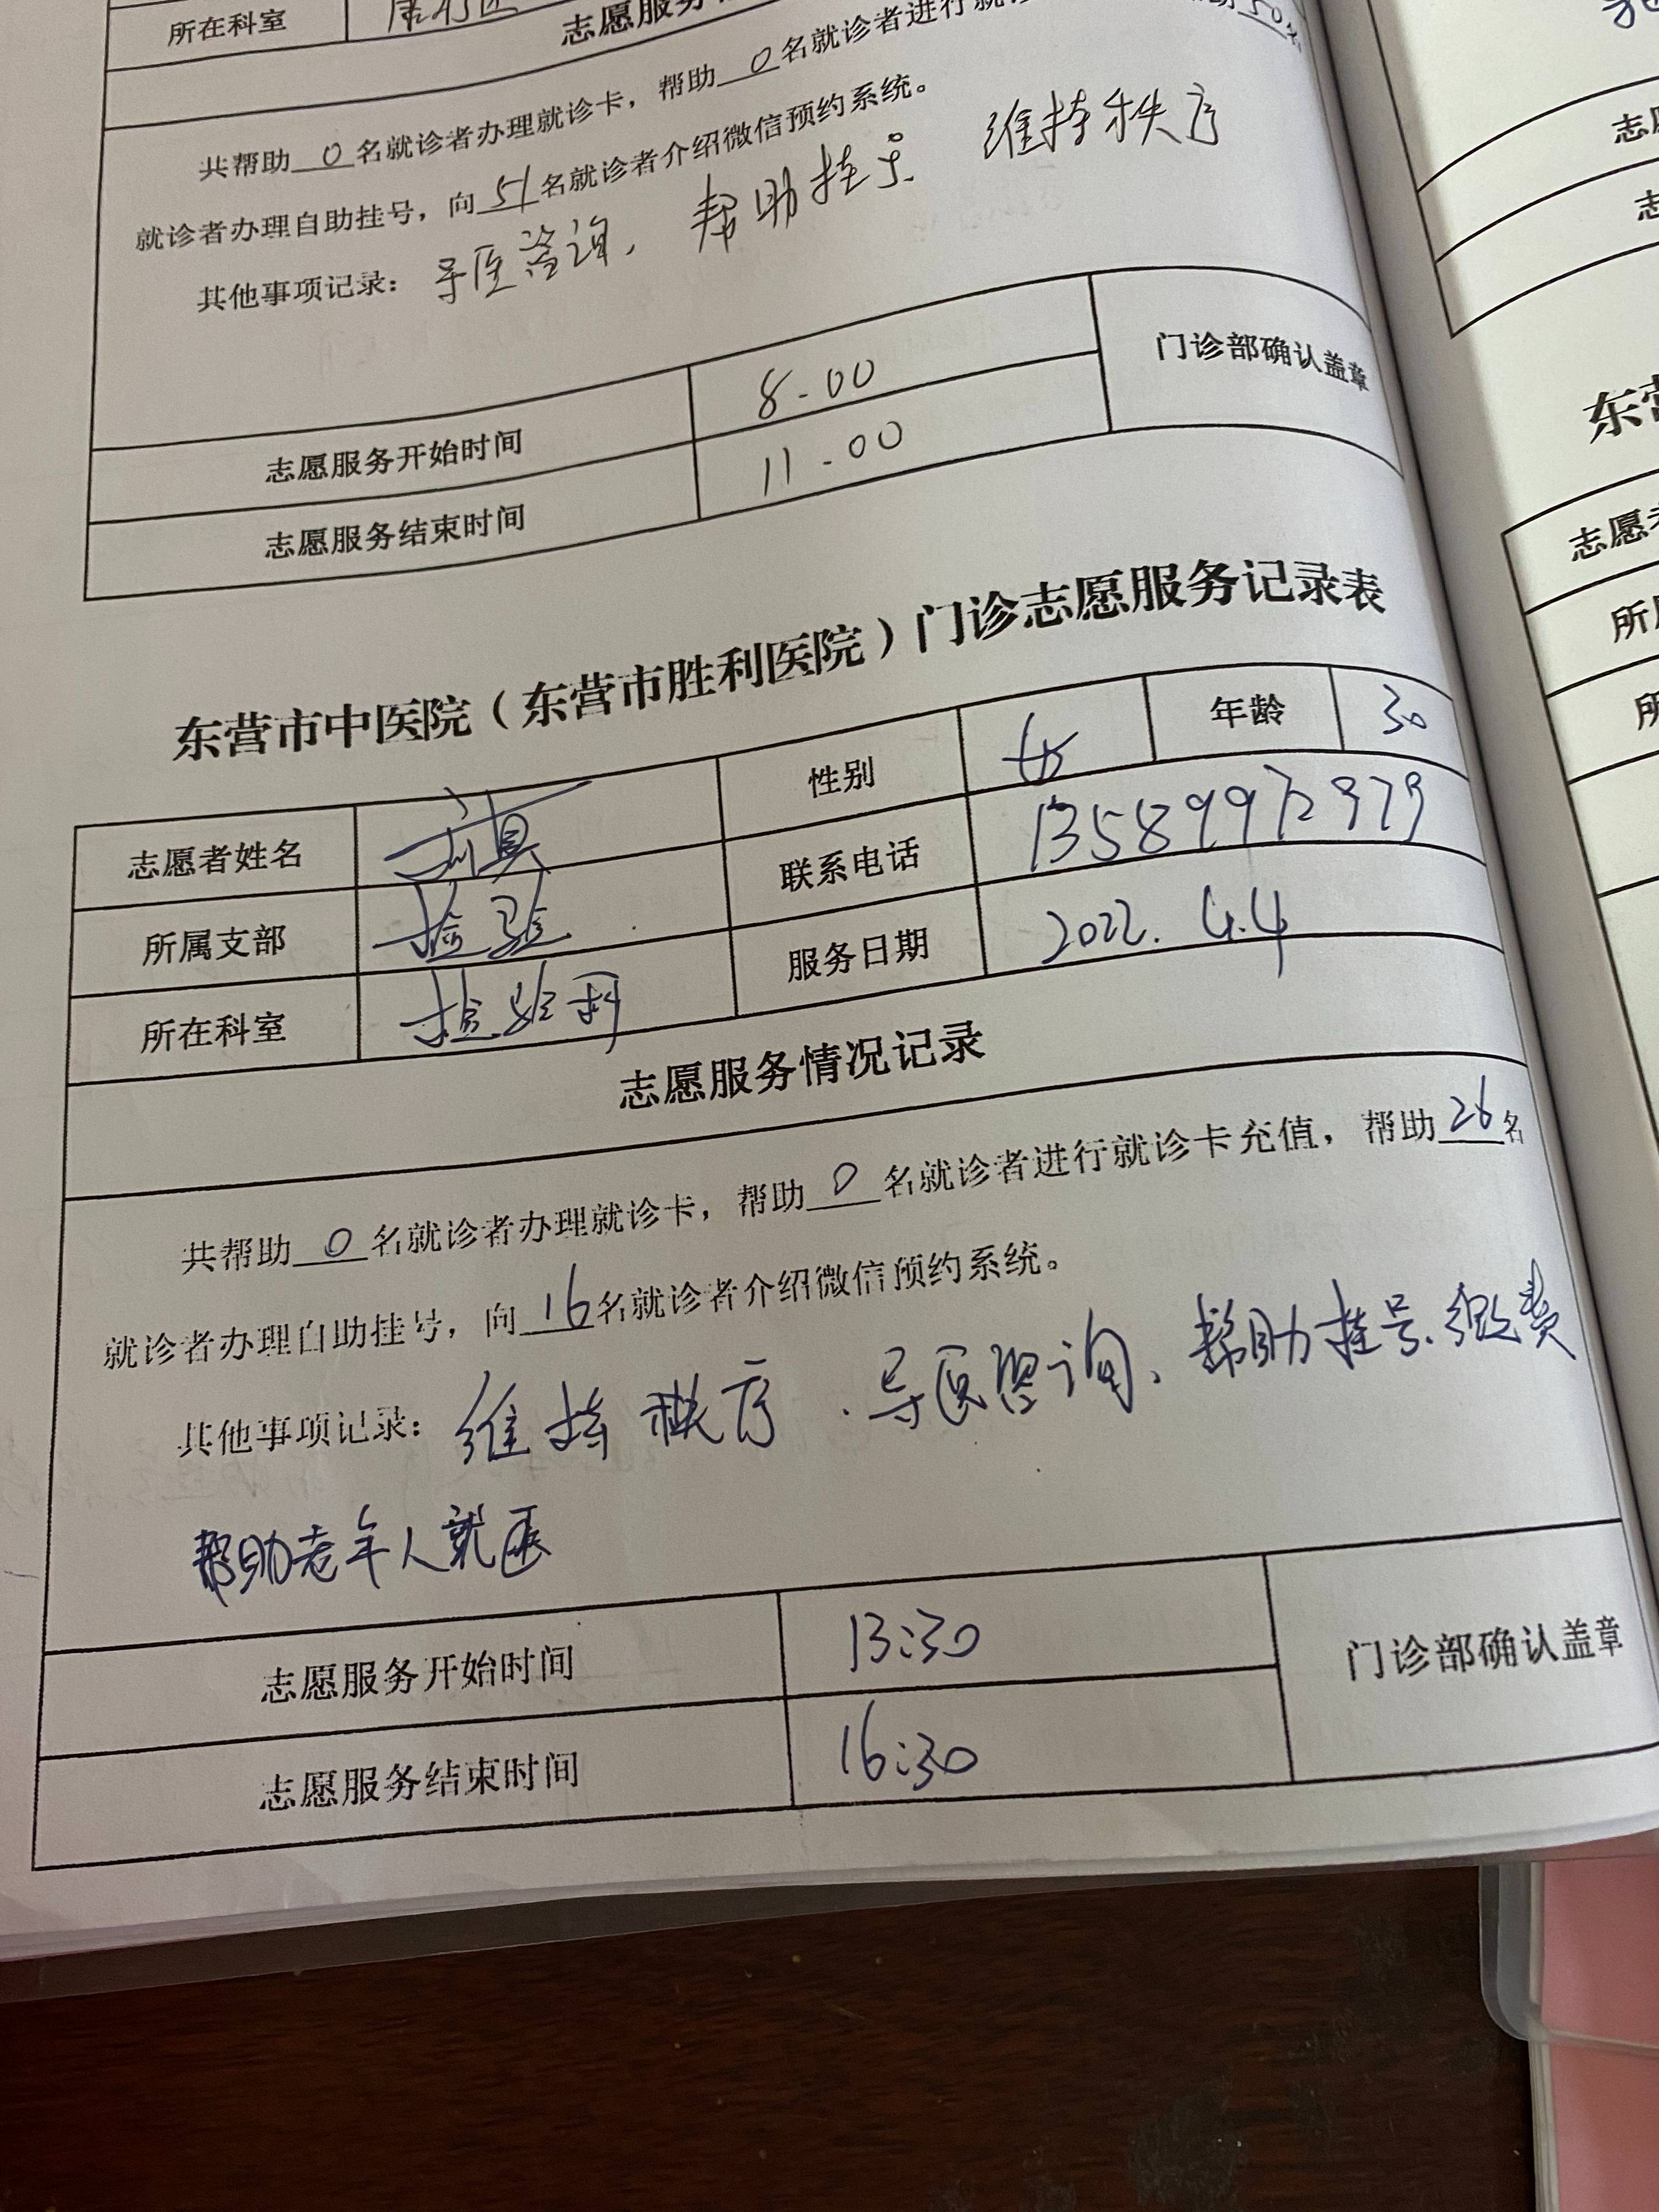 所在科室
志愿服务
共帮助 0 名就诊者办理就诊卡，帮助 0 名就诊者进行就
就诊者办理自助挂号，向 51 名就诊者介绍微信预约系统。
其他事项记录： 导医咨询、帮助挂号、维持秩序
志愿服务开始时间 8.00 门诊部确认盖章
志愿服务结束时间 11.00
东营市中医院（东营市胜利医院）门诊志愿服务记录表
志愿者姓名 性别 女 年龄 30
所属支部 检验 联系电话
所在科室 检验科 服务日期 2022.4.4
志愿服务情况记录
共帮助 0 名就诊者办理就诊卡，帮助 0 名就诊者进行就诊卡充值，帮助 26 名
就诊者办理自助挂号，向 16 名就诊者介绍微信预约系统。
其他事项记录： 维持秩序、导医咨询、帮助挂号、缴费
帮助老年人就医
志愿服务开始时间 13:30 门诊部确认盖章
志愿服务结束时间 16:30